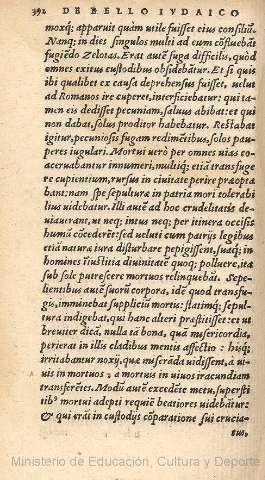 392 DE BELLO IVDAICO
moxq; apparuit quàm utile fuisset eius consiliũ.
Nanq; in dies singulos multi ad eum cõfluebãt
fugiẽdo Zelotas. Erat autẽ fuga difficilis, quòd
omnes exitus custodibus obsidebãtur. Et si quis
ibi qualibet ex causa deprehensus fuisset, uelut
ad Romanos ire cuperet, interficiebatur: qui ta-
men eis dedisset pecuniam, saluus abibat: et qui
non dabat, solus proditor habebatur. Restabat
igitur, pecuniosis fugam redimẽtibus, solos pau-
peres iugulari. Mortui uerò per omnes uias co-
aceruabantur innumeri, multiq; etiã transfuge
re cupientium, rursus in ciuitate perire præopta
bant: nam spe sepulturæ in patria mori tolerabi
lius uidebatur. Illi autẽ ad hoc crudelitatis de-
uiauerant, ut neq; intus neq; per itinera occisis
humũ cõcederẽt: sed ueluti cum patrijs legibus
etiã naturæ iura disturbare pepigissent, suaq; in
homines iniustitia diuinitatẽ quoq; polluere, ita
sub sole putrescere mortuos relinquebãt. Sepe-
lientibus autẽ suorũ corpora, idẽ quod transfu-
gis, imminebat suppliciũ mortis: statimq; sepul-
tura indigebat, qui hanc alteri præstitisset: et ut
breuiter dicã, nulla tã bona, quã misericordia,
perierat in illis cladibus mentis affectio: hisq;
irritabantur noxij, quæ miserãda uidissent, a ui-
uis in mortuos, a mortuis in uiuos iracundiam
transferẽtes. Modũ autẽ excedẽte metu, supersti
tibᵒ mortui adepti requiẽ beatiores uidebãtur:
& qui erãt in custodijs cõparatione sui crucia-
tus,
Ministerio de Educación, Cultura y Deporte